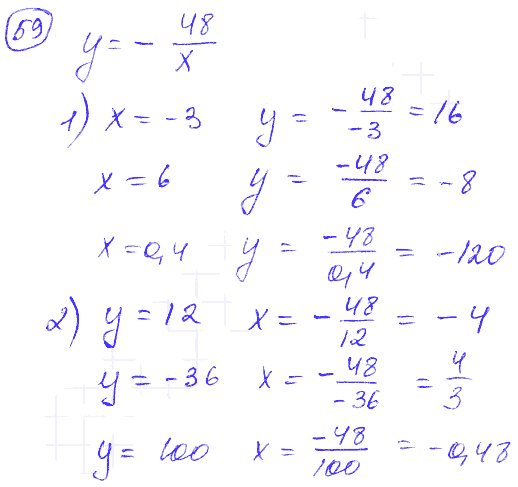 59
y = - 48/x
1) x = -3 y = - 48/-3 = 16
x = 6 y = -48/6 = -8
x = 0,4 y = -48/0,4 = -120
2) y = 12 x = - 48/12 = -4
y = -36 x = -48/-36 = 4/3
y = 100 x = -48/100 = -0,48